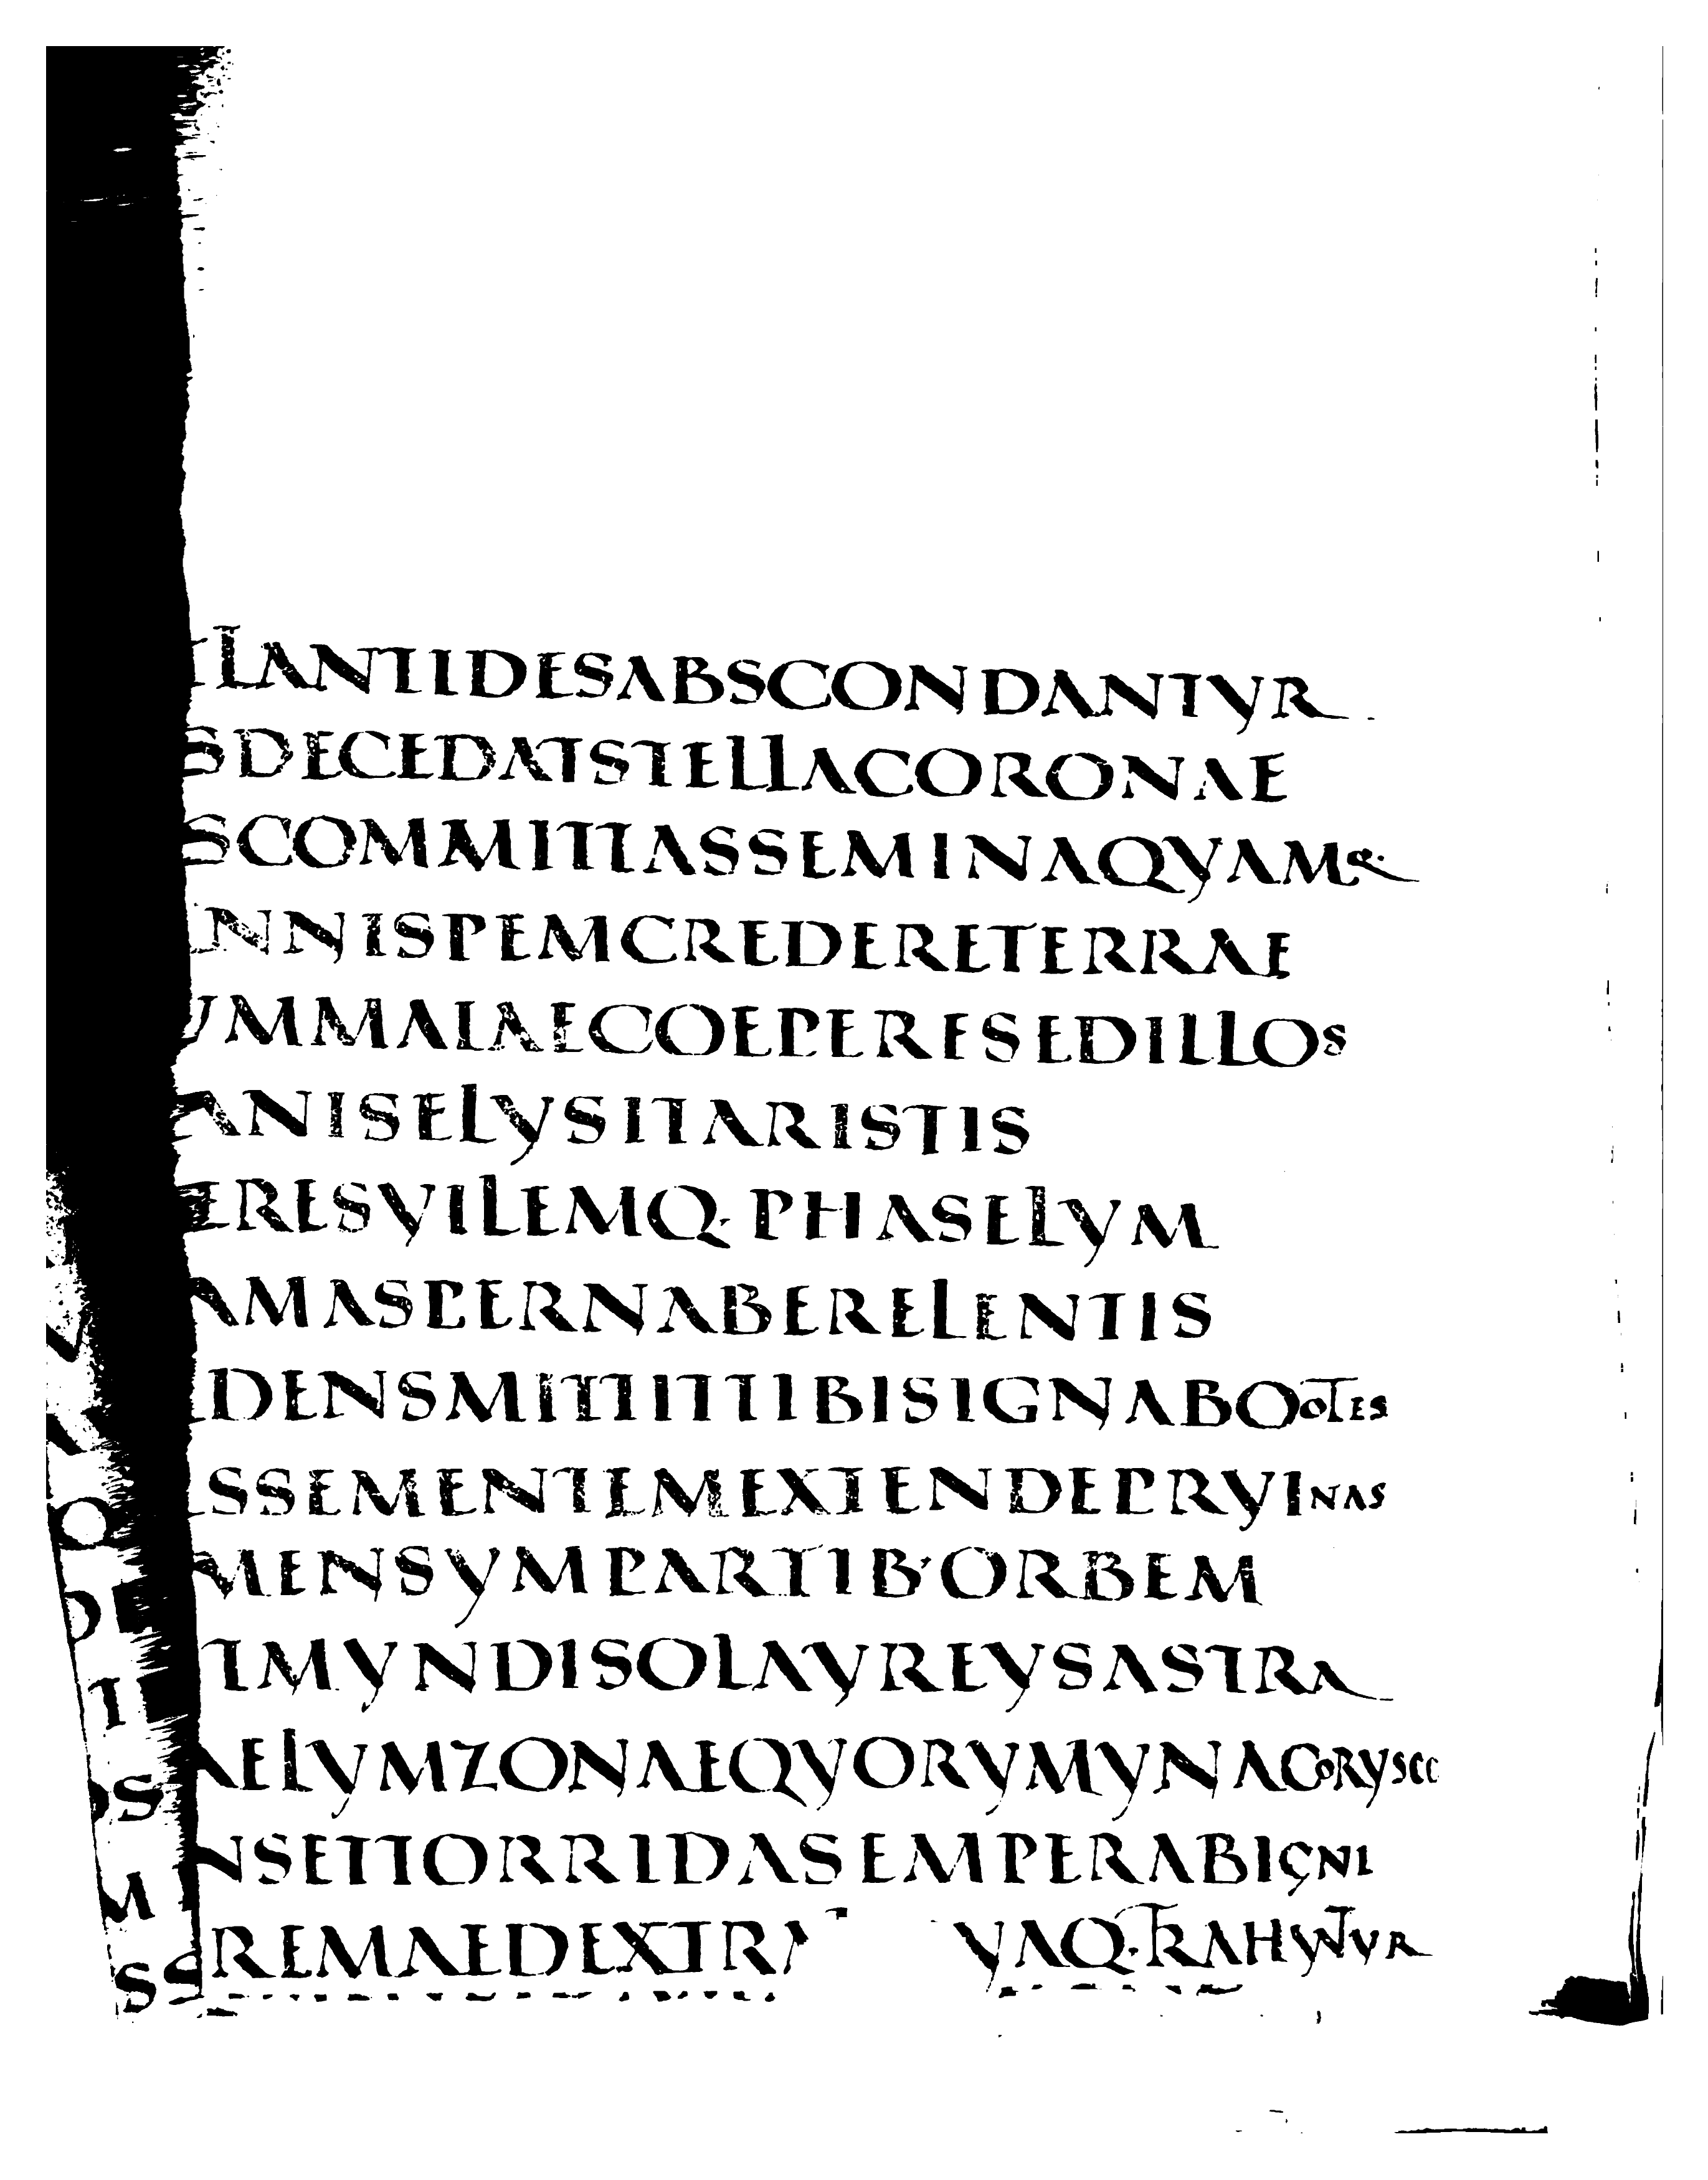 TLANTIDESABSCONDANTVR
SDECEDATSTELLACORONAE
SCOMMITTASSEMINAQVAMQ.
ANNISPEMCREDERETERRAE
VMMAIAECOEPERESEDILLOS
ANISELVSITARISTIS
ERESVILEMQ·PHASELVM
AMASPERNABERELENTIS
DENSMITTITTIBISIGNABOOTES
SSEMENTEMEXTENDEPRVINAS
MENSVMPARTIB'ORBEM
TMVNDISOLAVREVSASTRA
AELVMZONAEQVORVMVNACORVSCO
NSETTORRIDASEMPERABIGNI
REMAEDEXTRA VAQ·TRAHVNTVR